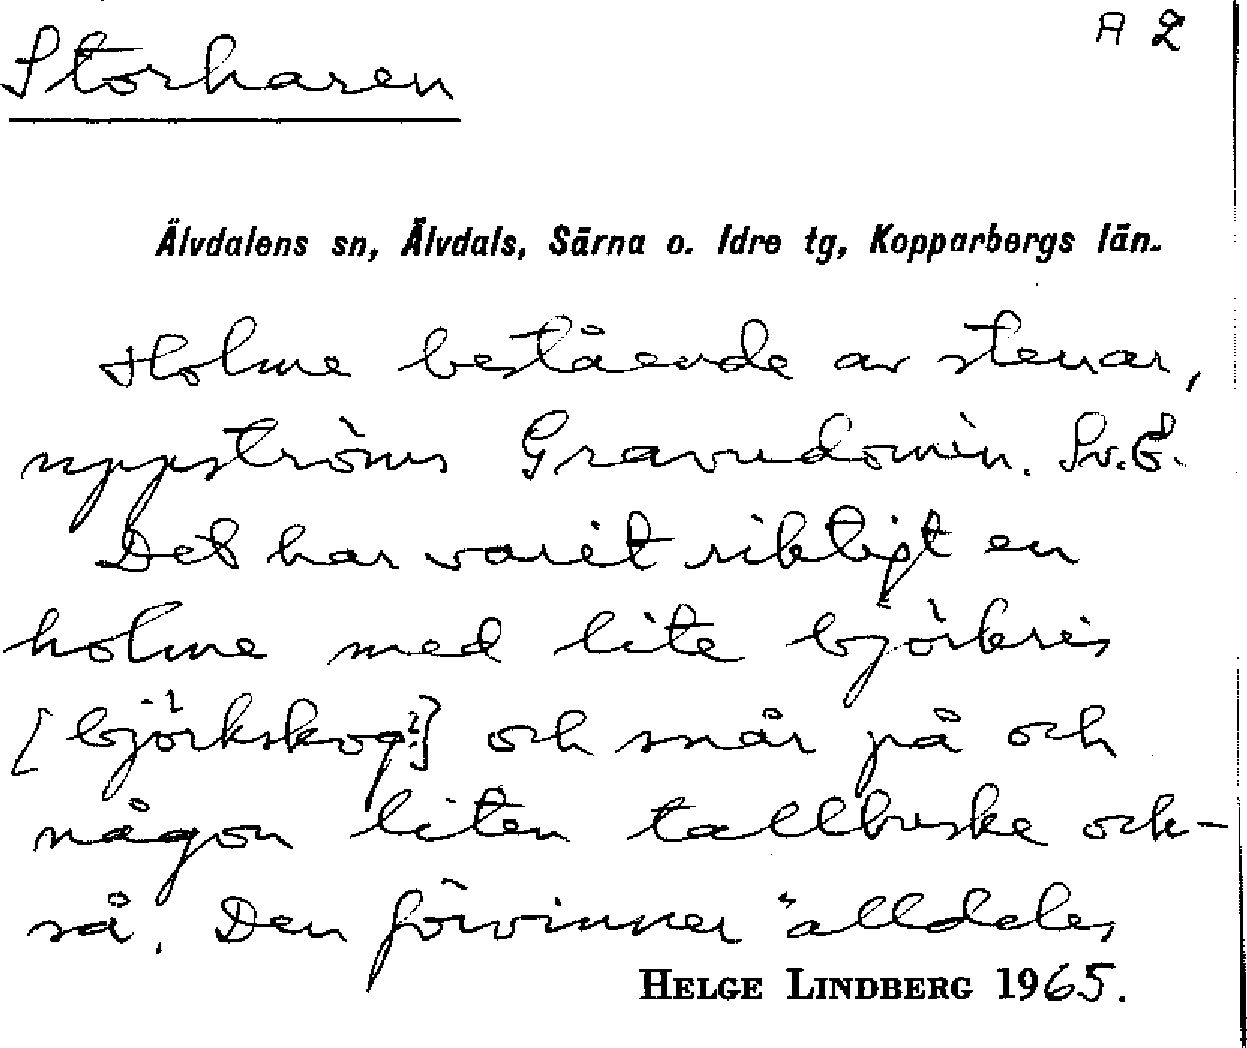 A 2
Storharen
Älvdalens sn, Älvdals, Särna o. Idre tg, Kopparbergs län.
Holme bestående av stenar,
uppströms Gravudomèn. Sv. E.
Det har varit riktigt en
holme med lite björkris
[björkskog!] och snår på och
någon liten tallbuske ock-
så. Den förvinner alldeles
HELGE LINDBERG 1965.